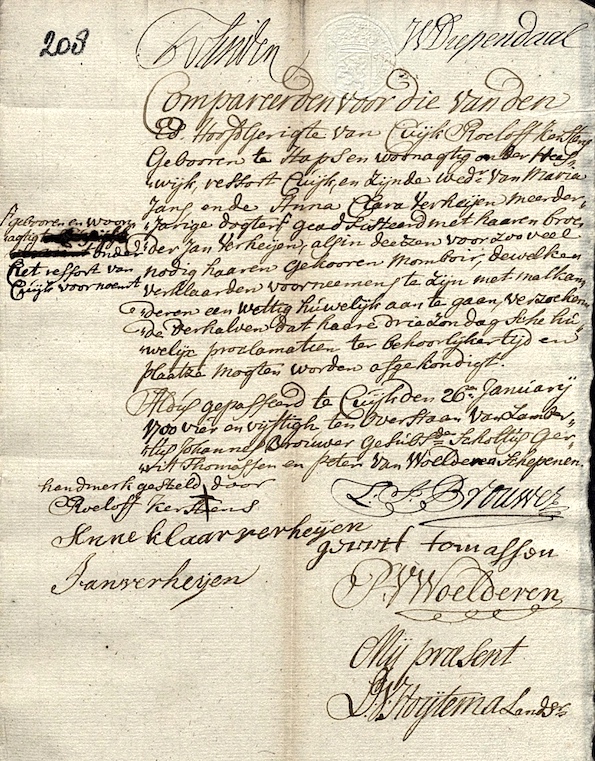 208
W Diependaal
Compareerden voor die van den
Ed. Hooftgerigte van Cuijk Roeloff Kerstens
Gebooren te Haps en woonagtig onder
wijk, ressort Cuijk, en zijnde wedr. van Maria
Jans, en de Anna Clara Verheijen meerder,
jarige dogter geadsisteerd met haaren broe,
der Jan Verheijen, als in deezen voor zoo veel
nodig haaren gekooren momboir, dewelke
verklaarden voorneemens te zijn met malkan,
deren een wettig huwelijk aan te gaan, verzoeken,
de derhalven dat haare drie zondagsche hu,
welijx proclamatien ter behoorlijker tijd en
plaatze mogten worden afgekondigt.
gebooren en woon,
nagtig
onder
het ressort van
Cuijk voornoemt
Aldus gepasseerd te Cuijk den 26en January
1700 vier en vijftigh ten overstaan van Lamber,
tus Johannes Brouwer Gesubst.de Scholtis Ger,
rit Thomassen en Peter van Woelderen Schepenen.
handmerk gesteld door
Roeloff Kerstens
L. J. Brouwer
Anne klaar verheijen
gerrit tomassen
Jan verheijen
P. V. Woelderen
Mij præsent
V. Hoijtema Landsr.